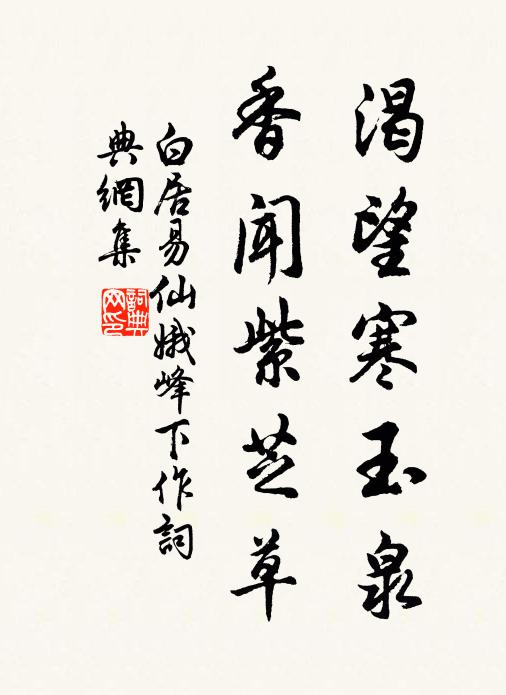 渴望寒玉泉
香聞紫芝草
白居易仙娥峰下作詞
典網集
詞典
网印